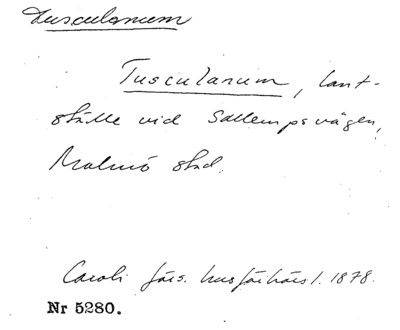 Tusculanum
Tusculanum, lant-
ställe vid Sallempsvägen,
Malmö stad.
Caroli förs. husförhörsl. 1878.
Nr 5280.